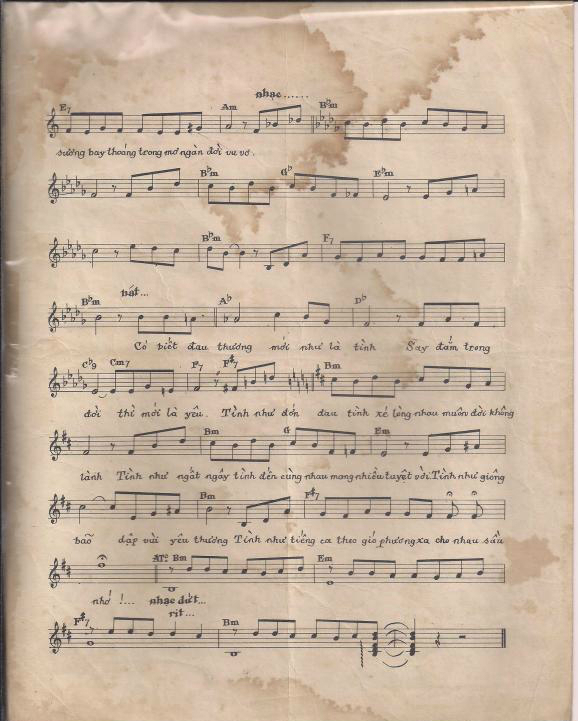 nhạc......
E7 Am Bbm
sương bay thoảng trong mơ ngàn đời vu vơ.
Bbm Gb Ebm
Bbm F7
hát...
Bbm Ab Db
Có biết đau thương mới như là tình Say đắm trong
Cb9 Cm7 F7 F#7 Bm
đời thì mới là yêu. Tình như đớn đau tình xé lòng nhau muôn đời không
Bm G Em
lành Tình như ngất ngây tình đến cùng nhau mang nhiều tuyệt vời. Tình như giông
Bm F#7
bão dập vùi yêu thương Tình như tiếng ca theo gió phương xa cho nhau sầu
Bm Em
nhớ !... nhạc dứt...
rit...
F#7 Bm